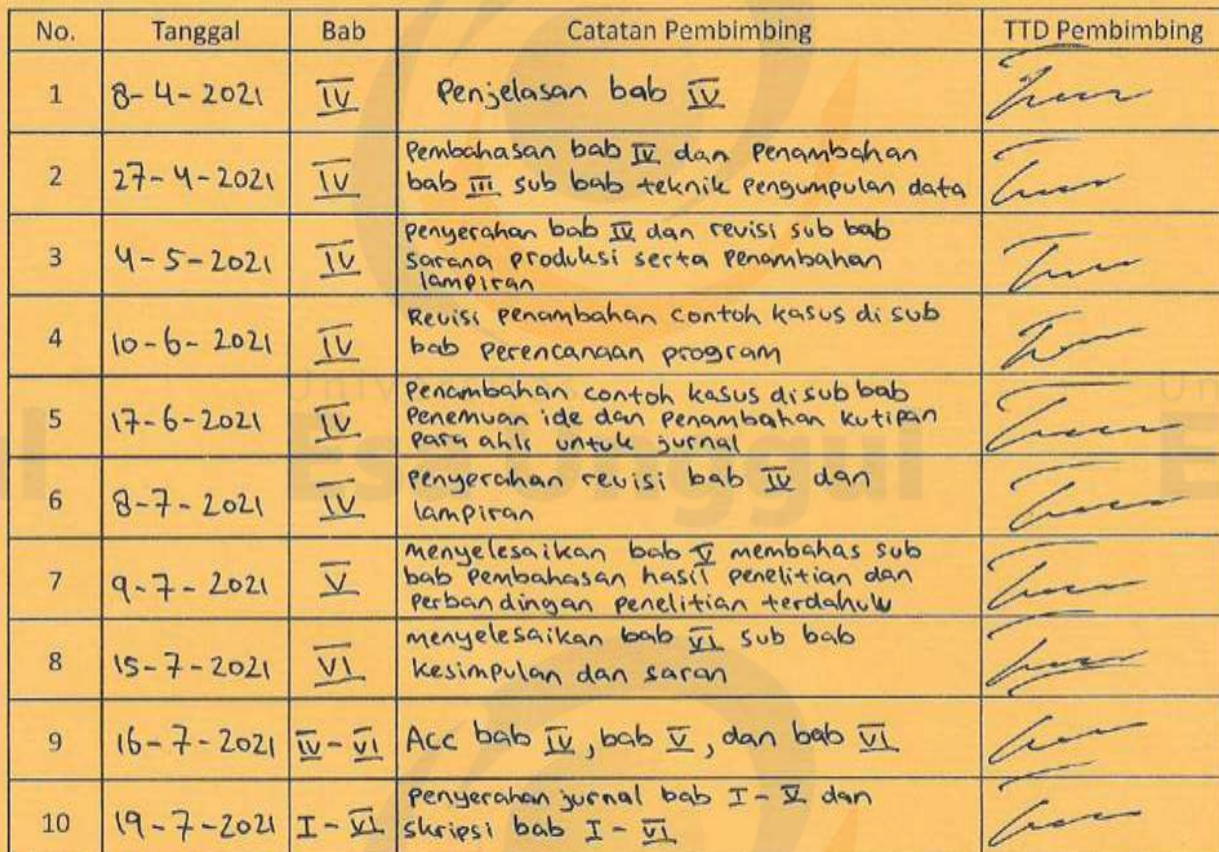 No. Tanggal Bab Catatan Pembimbing TTD Pembimbing
1 8-4-2021 IV Penjelasan bab IV
2 27-4-2021 IV Pembahasan bab IV dan Penambahan
bab III sub bab teknik Pengumpulan data
3 4-5-2021 IV penyerahan bab IV dan revisi sub bab
sarana produksi serta Penambahan
lampiran
4 10-6-2021 IV Revisi penambahan contoh kasus di sub
bab perencanaan program
5 17-6-2021 IV Penambahan contoh kasus di sub bab
Penemuan ide dan Penambahan kutipan
para ahli untuk jurnal
6 8-7-2021 IV penyerahan revisi bab IV dan
lampiran
7 9-7-2021 V menyelesaikan bab V membahas sub
bab pembahasan hasil penelitian dan
perbandingan penelitian terdahulu
8 15-7-2021 VI menyelesaikan bab VI sub bab
kesimpulan dan saran
9 16-7-2021 IV-VI Acc bab IV, bab V, dan bab VI
10 19-7-2021 I-VI penyerahan jurnal bab I-V dan
skripsi bab I-VI